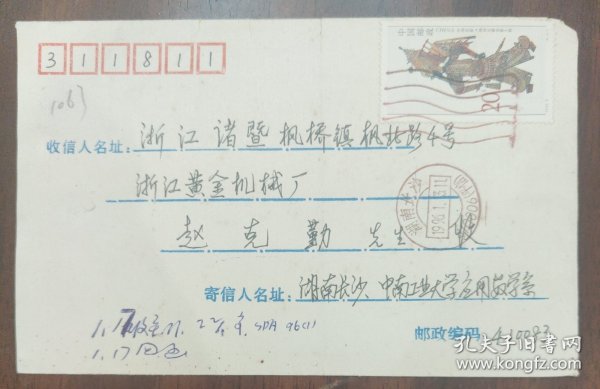 311811
中国邮政
20分
(106)
收信人名址: 浙江诸暨枫桥镇枫北路4号
浙江黄金机械厂
赵克勤 先生 收
湖南长沙
1996.1.
寄信人名址: 湖南长沙、中南工业大学应用数学系
1.17
SDA 96(1)
1.17
邮政编码 410083
孔夫子旧书网
www.kongfz.com